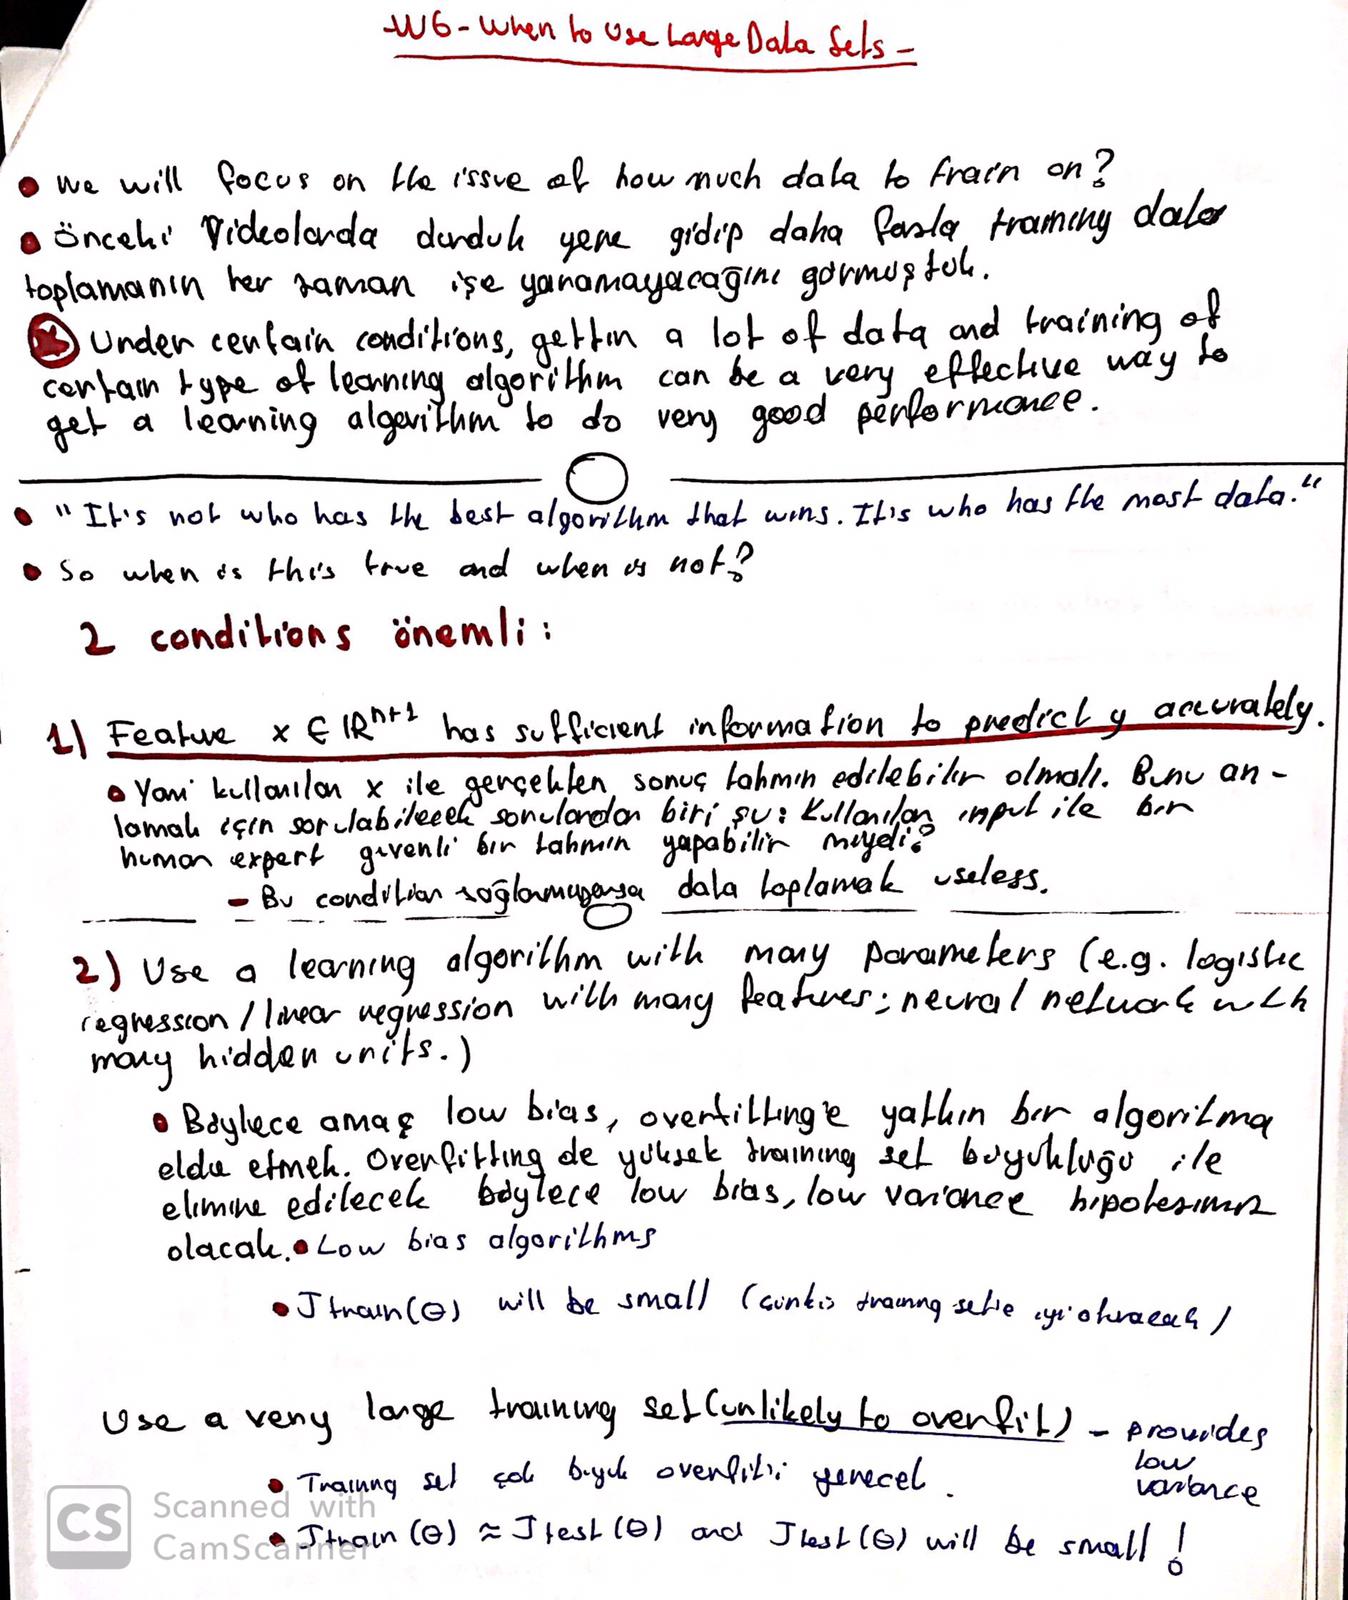 -W6-When to Use Large Data Sets-
• We will focus on the issue of how much data to train on?
• Önceki Videolarda durduk yere gidip daha fazla training data
toplamanın her zaman işe yaramayacağını görmüştük.
Under certain conditions, gettin a lot of data and training of
certain type of learning algorithm can be a very effective way to
get a learning algorithm to do very good performance.
• "It's not who has the best algorithm that wins. It is who has the most data."
• So when is this true and when is not?
2 conditions önemli:
1) Feature x ∈ ℝⁿ⁺¹ has sufficient information to predict y accurately.
• Yani kullanılan x ile gerçekten sonuç tahmin edilebilir olmalı. Bunu an-
lamak için sorulabilecek sorulardan biri şu: Kullanılan input ile bir
human expert güvenli bir tahmin yapabilir miydi?
- Bu condition sağlanmıyorsa data toplamak useless.
2) Use a learning algorithm with many parameters (e.g. logistic
regression / linear regression with many features; neural network with
many hidden units.)
• Böylece amaç low bias, overfitting'e yatkın bir algoritma
elde etmek. Overfitting de yüksek training set büyüklüğü ile
elimine edilecek böylece low bias, low variance hipotesimiz
olacak. • Low bias algorithms
• Jtrain(Θ) will be small (çünkü training sete iyi oturacak)
Use a very large training set (unlikely to overfit) - provides
low
variance
• Training set çok büyük overfiti yenecek.
• Jtrain(Θ) ≈ Jtest(Θ) and Jtest(Θ) will be small!
CS Scanned with
CamScanner